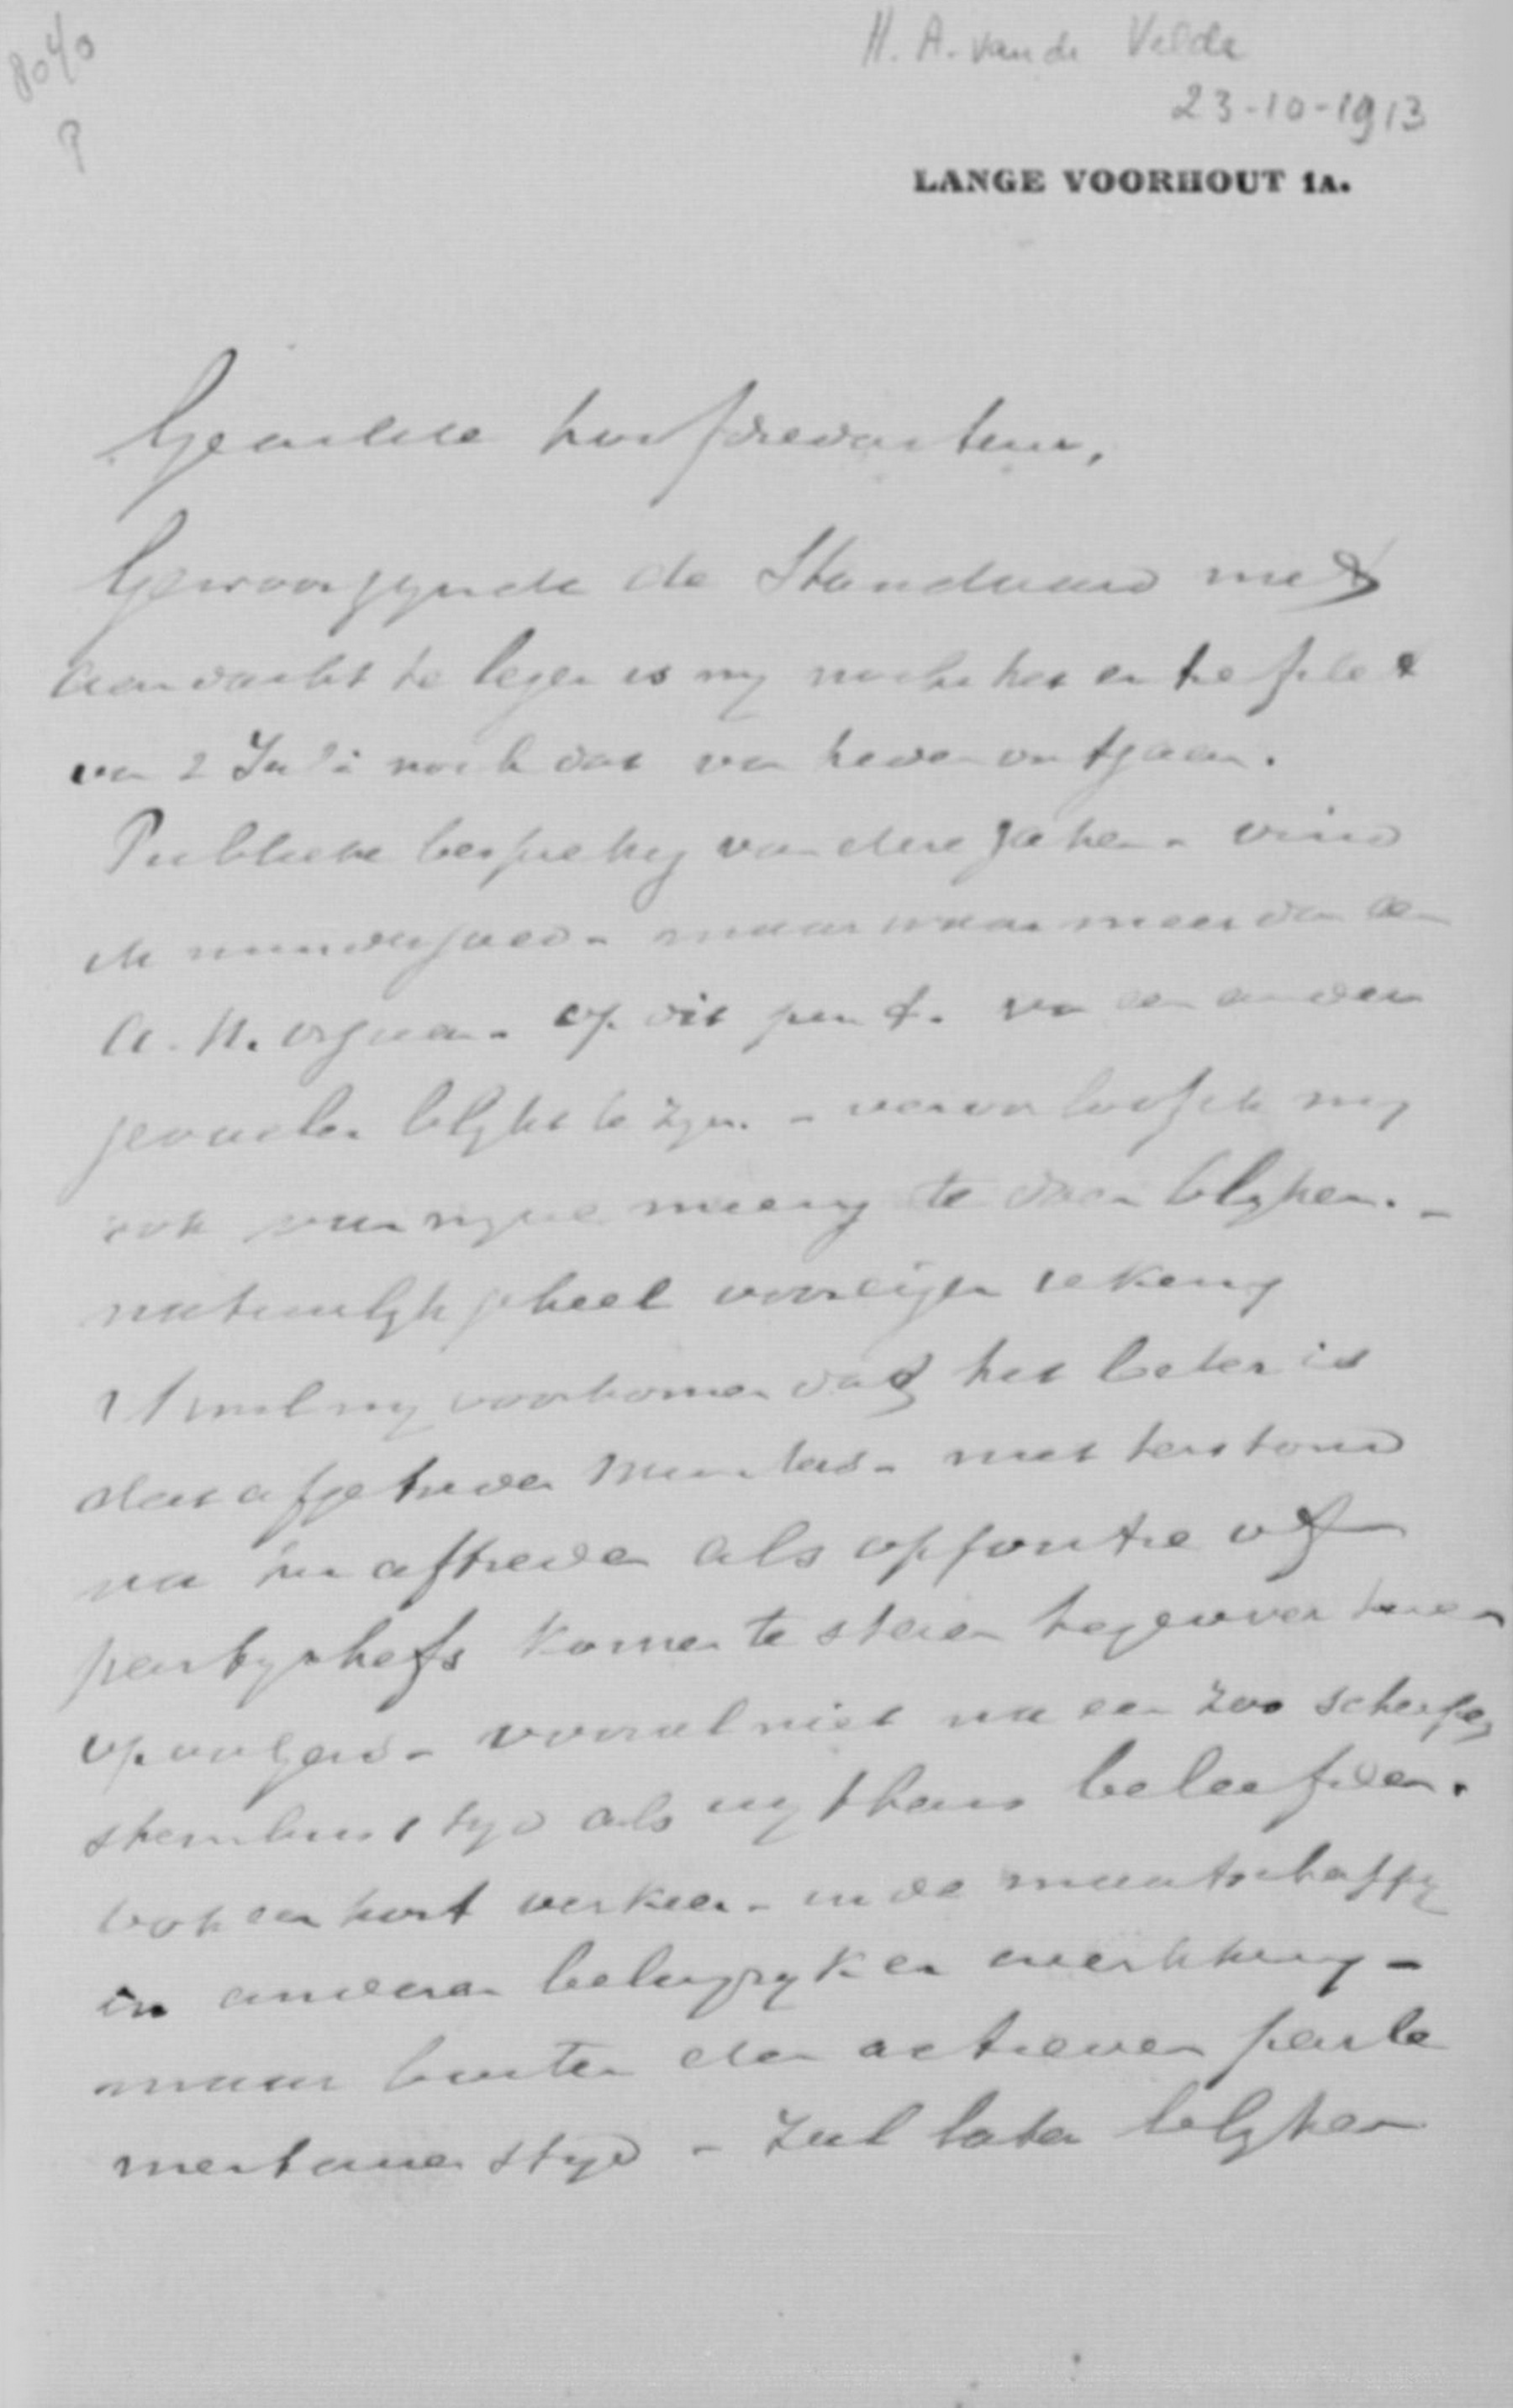 8040
P
H. A. van de Velde
23-10-1913
LANGE VOORHOUT 1A.
Geachte hoofdredacteur,
Gewoon zijnde de Standaard met
aandacht te lezen is mij noch het entrefilet
van 2 Juli noch dat van heden ontgaan.
Publieke bespreking van deze zaken vind
ik minder goed - maar waar meer dan een
A.R. orgaan op dit punt van een ander
gevoelen blijkt te zijn - veroorloof ik mij
ook van mijne meening te doen blijken. -
natuurlijk geheel voor eigen rekening
't Wil mij voorkomen dat het beter is
dat afgetreden Ministers niet terstond
na hun aftreden als oppositie of
partijchefs komen te staan tegenover hunne
opvolgers - vooral niet na een zoo scherpen
stembusstrijd als wij thans beleefden.
Ook een kort verkeer in de maatschappij
in anderen belangrijken werkkring -
maar buiten den actieven parle
mentairen strijd - zal later blijken